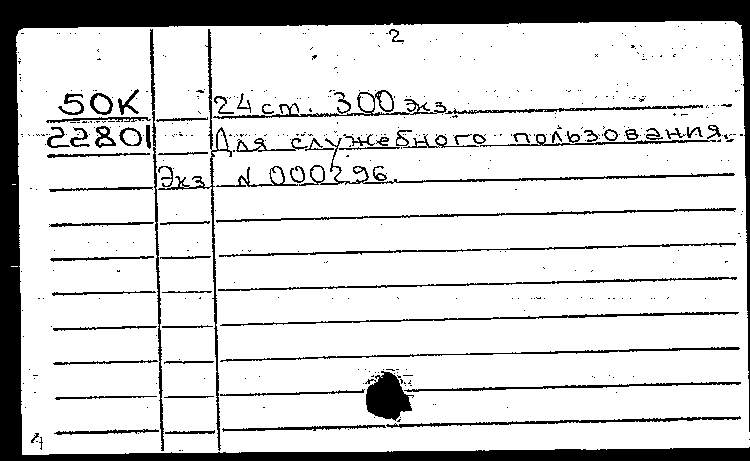 2
50К 24 ст. 300 экз.
22801 Для служебного пользования.
Экз N 000296.
4